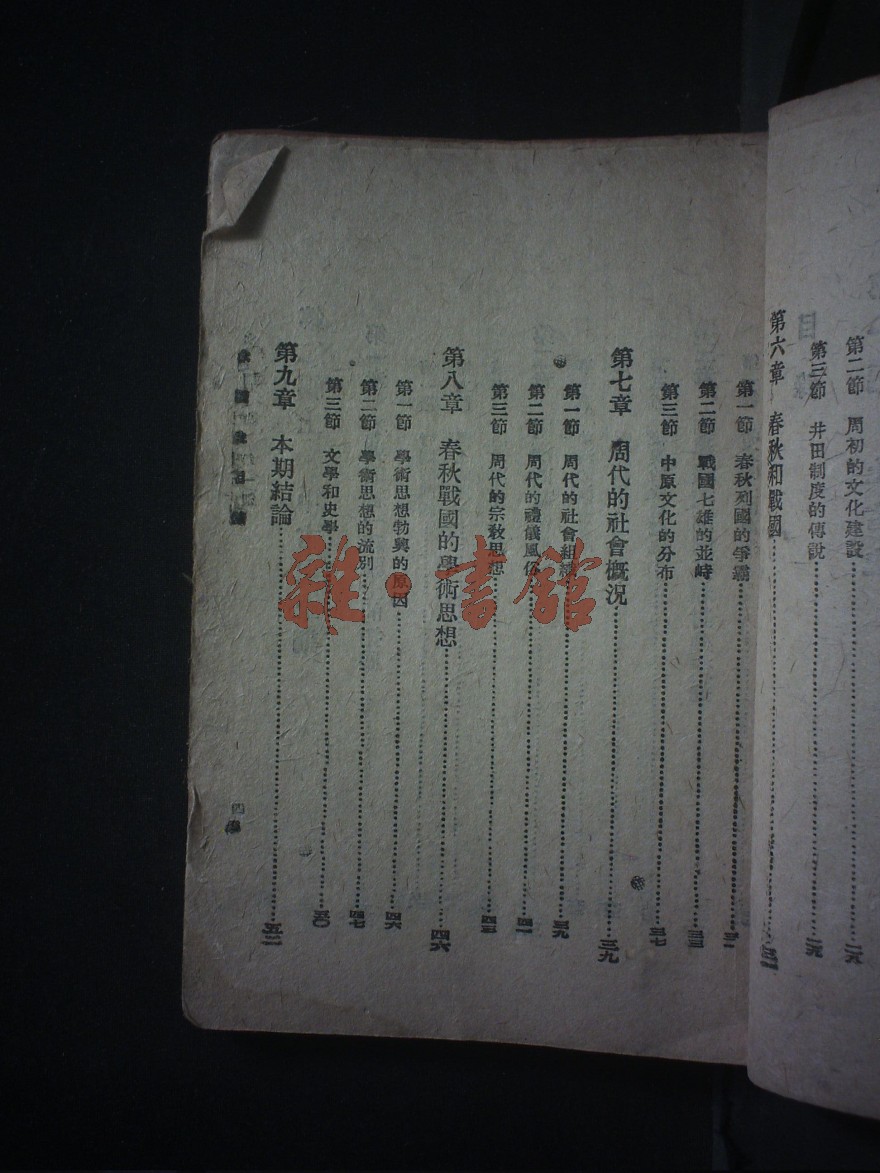 第二節 周初的文化建設……二九
第三節 井田制度的傳說……二九
第六章 春秋和戰國……三一
第一節 春秋列國的爭霸……三一
第二節 戰國七雄的並峙……三三
第三節 中原文化的分布……三七
第七章 周代的社會概況……三九
第一節 周代的社會組織……三九
第二節 周代的禮儀風俗……四一
第三節 周代的宗敎思想……
第八章 春秋戰國的學術思想……四六
第一節 學術思想勃興的原因……四六
第二節 學術思想的流別……四七
第三節 文學和史學……五〇
第九章 本期結論……五二
雜·書館